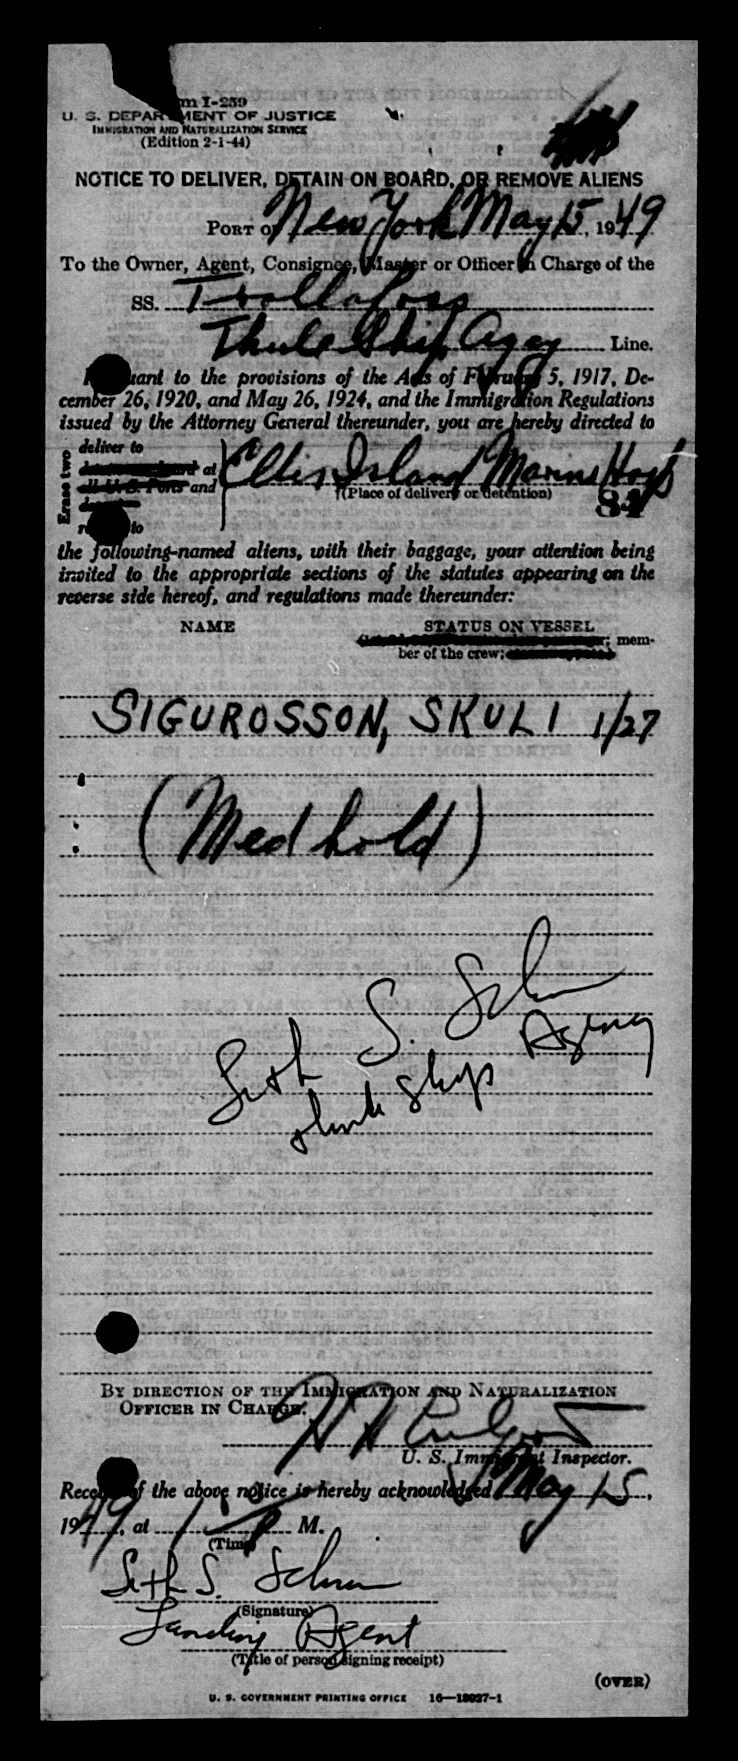 m I-259
U. S. DEPARTMENT OF JUSTICE
IMMIGRATION AND NATURALIZATION SERVICE
(Edition 2-1-44)
NOTICE TO DELIVER, DETAIN ON BOARD, OR REMOVE ALIENS
PORT OF New York May 15, 1949
To the Owner, Agent, Consignee, Master or Officer in Charge of the
SS. Trollafoss
Thule Ship Agcy Line.
Pursuant to the provisions of the Acts of February 5, 1917, De-
cember 26, 1920, and May 26, 1924, and the Immigration Regulations
issued by the Attorney General thereunder, you are hereby directed to
Erase two
deliver to
at
all U. S. Ports and
Ellis Island Marine Hosp
(Place of delivery or detention)
84
to
the following-named aliens, with their baggage, your attention being
invited to the appropriate sections of the statutes appearing on the
reverse side hereof, and regulations made thereunder:
NAME STATUS ON VESSEL
; mem-
ber of the crew;
SIGUROSSON, SKULI 1/27
(Med hold)
Seth S.
Thule Ships Agency
BY DIRECTION OF THE IMMIGRATION AND NATURALIZATION
OFFICER IN CHARGE.
U. S. Immigrant Inspector.
Receipt of the above notice is hereby acknowledged May 15,
1949, at 1 P M.
(Time)
Seth S.
(Signature)
Landing Agent
(Title of person signing receipt)
(OVER)
U. S. GOVERNMENT PRINTING OFFICE 16—18937-1